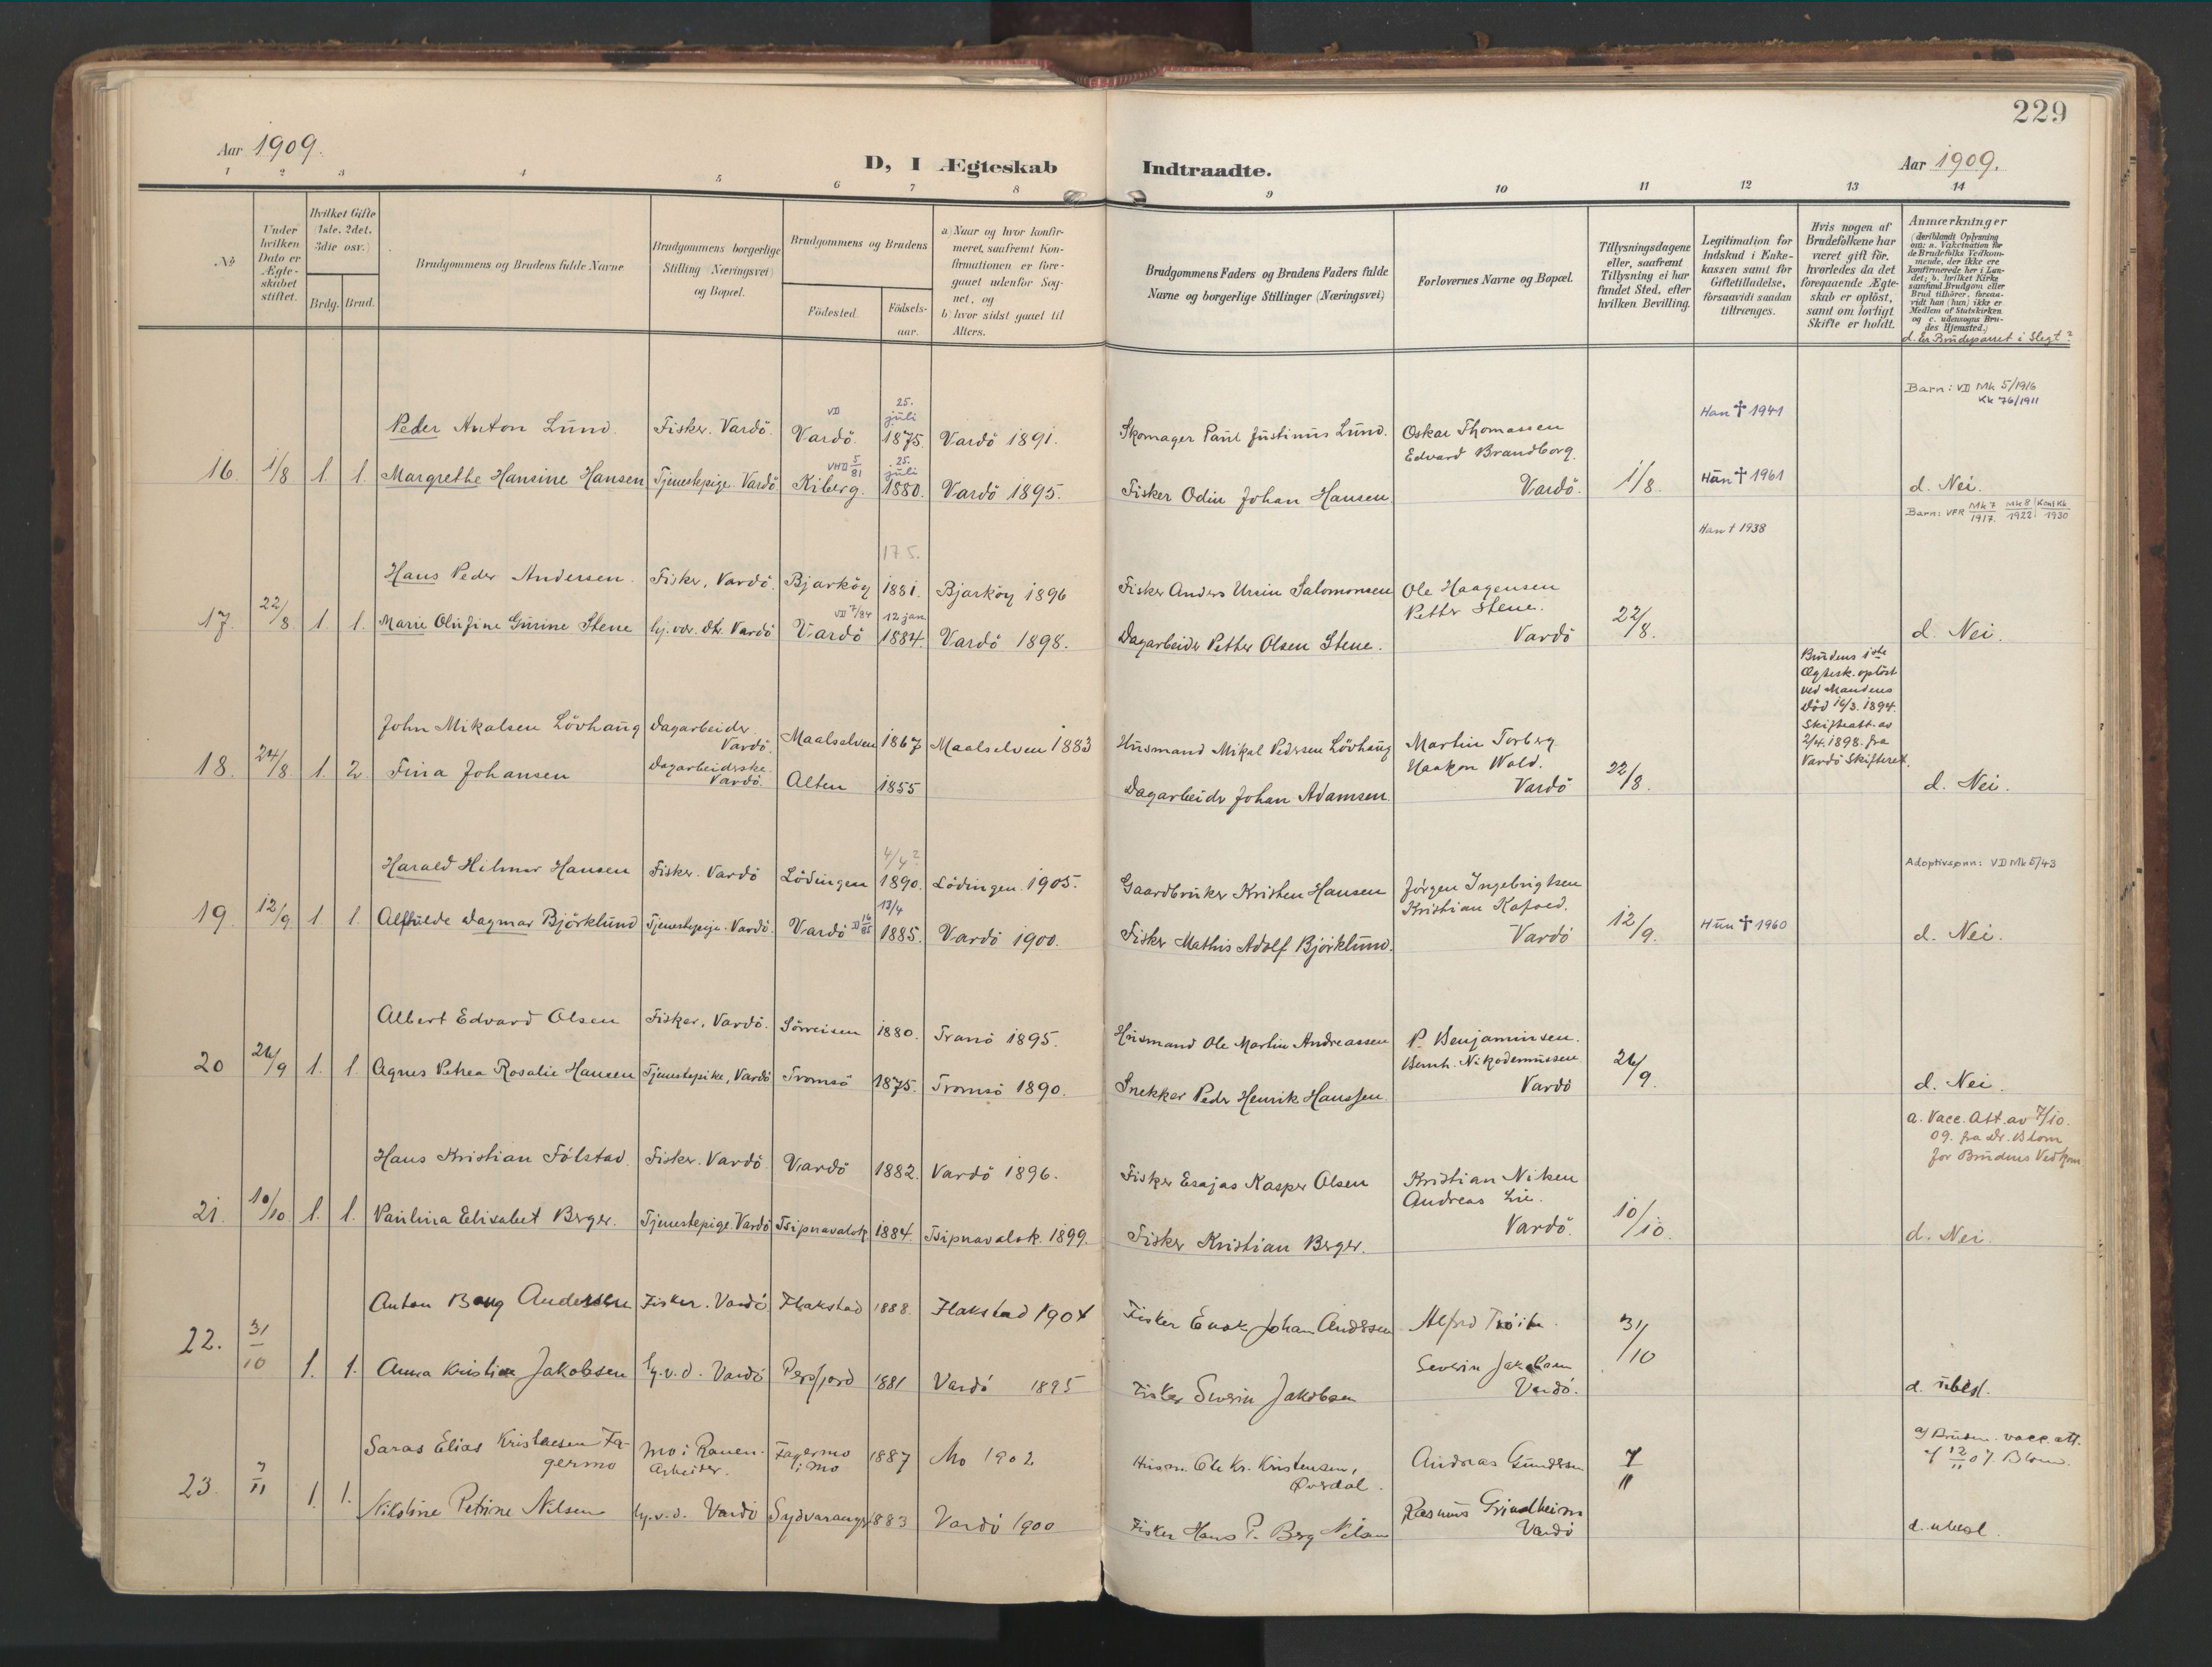 229
Aar 1909.
D, I Ægteskab Indtraadte.
Aar 1909.
1 2 3 4 5 6 7 8 9 10 11 12 13 14
No
Under
hvilken
Dato er
Ægte-
skabet
stiftet.
Hvilket Gifte
(1ste, 2det,
3die osv.)
Brdg. Brud.
Brudgommens og Brudens fulde Navne
Brudgommens borgerlige
Stilling (Næringsvei)
og Bopæl.
Brudgommens og Brudens
Födested.
Födsels-
aar.
a) Naar og hvor konfir-
meret, saafremt Kon-
firmationen er fore-
gaaet udenfor Sog-
net, og
b) hvor sidst gaaet til
Alters.
Brudgommens Faders og Brudens Faders fulde
Navne og borgerlige Stillinger (Næringsvei)
Forlovernes Navne og Bopæl.
Tillysningsdagene
eller, saafremt
Tillysning ei har
fundet Sted, efter
hvilken Bevilling.
Legitimation for
Indskud i Enke-
kassen samt for
Giftetilladelse,
forsaavidt saadan
tiltrænges.
Hvis nogen af
Brudefolkene har
været gift för,
hvorledes da det
foregaaende Ægte-
skab er oplöst,
samt om lovligt
Skifte er holdt.
Anmærkninger
(deriblandt Oplysning
om: a. Vakcination for
de Brudefolks Vedkom-
mende, der ikke ere
konfirmerede her i Lan-
det; b. hvilket Kirke
samfund Brudgom eller
Brud tilhörer, forsaa-
vidt han (hun) ikke er
Medlem af Statskirken
og c. udensogns Bru-
des Hjemsted.)
d. Er Brudeparret i Slegt?
16. 1/8 1. 1.
Peder Anton Lund. Fisker. Vardö. VD Vardö. 25. juli 1875. Vardö 1891.
Skomager Paul Justinus Lund. Oskar Thomassen
Edvard Brandborg.
Han † 1941
Barn: VD Mk 5/1916
Kk 76/1911
Margrethe Hansine Hansen Tjenestepige. Vardö VHD 5/81 Kiberg. 25. juli 1880. Vardö 1895.
Fisker Odin Johan Hansen. Vardö. 1/8. Hun † 1961 d. Nei.
17. 22/8 1. 1.
Hans Peder Andersen. Fisker, Vardö. Bjarköy 17.5. 1881. Bjarköy 1896
Fisker Anders Ursin Salomonsen Ole Haagensen
Petter Stene.
Han † 1938
Barn: VFR Mk 7/1917. Mk 8/1922 Konf Kk/1930
Marie Olufine Gurine Stene hj.vær. dtr. Vardö VD 7/84 Vardö 12 jan 1884. Vardö 1898.
Dagarbeider Petter Olsen Stene. Vardö 22/8. d. Nei.
18. 24/8 1. 2.
John Mikalsen Lövhaug Dagarbeider
Vardö. Maalselven 1867 Maalselven 1883
Husmand Mikal Pedersen Lövhaug Martin Torberg.
Haakon Wold.
Brudens 1ste
Ægtesk. oplöst
ved Mandens
död 16/3. 1894.
Skifteatt. av
2/4. 1898. fra
Vardö Skifteret.
Fina Johansen Dagarbeiderske.
Vardö. Alten 1855
Dagarbeider Johan Adamsen. Vardö 22/8. d. Nei.
19. 12/9 1. 1.
Harald Hilmar Hansen Fisker. Vardö Lödingen 4/4? 1890. Lödingen. 1905.
Gaardbruker Kristen Hansen Jörgen Ingebrigtsen
Kristian Kofoed.
Adoptivsønn: VD Mk 5/43
Alfhilde Dagmar Björklund Tjenestepige. Vardö. Vardö D 16/85 13/4 1885. Vardö 1900.
Fisker Mathis Adolf Björklund. Vardö 12/9. Hun † 1960 d. Nei.
20 26/9 1. 1
Albert Edvard Olsen Fisker, Vardö. Sörreisen 1880. Tranö 1895.
Husmand Ole Martin Andreassen P. Benjaminsen.
Bernh. Nikodemussen
Agnes Petrea Rosalie Hansen Tjenestepike, Vardö Tromsö 1875. Tromsö 1890.
Snekker Peder Henrik Hanssen. Vardö 26/9. d. Nei.
21. 10/10 1. 1.
Hans Kristian Fölstad. Fisker. Vardö. Vardö 1882. Vardö 1896.
Fisker Esajas Kasper Olsen Kristian Nilsen
Andreas Lie.
a. Vacc. Att. av 7/10.
09. fra Dr. Blom
for Brudens Vedkom.
Paulina Elisabet Berger. Tjenestepige. Vardö Tsipnavalok 1884. Tsipnavalok. 1899.
Fisker Kristian Berger. Vardö. 10/10. d. Nei.
22. 31/10 1. 1.
Anton Berg Andersen Fisker. Vardö Flakstad 1888. Flakstad 1904
Fisker Enok Johan Anderssen Alfred 31/10
Anna Kristine Jakobsen hj.v.d. Vardö Persfjord 1881 Vardö 1895
Fisker Severin Jakobsen Severin Jakobsen
Vardö. d. ubesl.
23. 7/11 1. 1.
Saras Elias Kristensen Fa-
germo Mo i Ranen.
Arbeider. Fagermo
i Mo 1887 Mo 1902
Husm. Ole Kr. Kristensen,
Andreas Gundersen 7/11
a) Bruden vacc. att.
af 12/11 07. Blom.
Nikoline Petrine Nilsen hj.v.d. Vardö Sydvaranger 1883 Vardö 1900
Fisker Hans P. Berg Nilsen Rasmus Grindheim
Vardö d. ubesl.